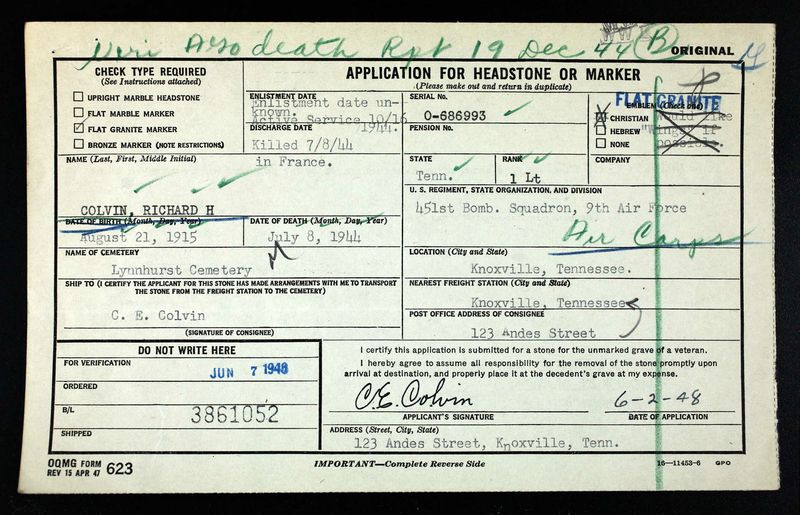 Veri AGO death Rpt 19 Dec 44 B ORIGINAL
CHECK TYPE REQUIRED
(See Instructions attached)
UPRIGHT MARBLE HEADSTONE
FLAT MARBLE MARKER
FLAT GRANITE MARKER
BRONZE MARKER (NOTE RESTRICTIONS)
APPLICATION FOR HEADSTONE OR MARKER
(Please make out and return in duplicate)
ENLISTMENT DATE
Enlistment date un-
known.
Active Service 10/16
DISCHARGE DATE 1944.
Killed 7/8/44
in France.
SERIAL No.
O-686993
PENSION No.
FLAT GRANITE
EMBLEM (Check one)
CHRISTIAN
HEBREW
NONE
Would like
"Wings" if
possible.
NAME (Last, First, Middle Initial)
COLVIN, RICHARD H
STATE
Tenn.
RANK
1 Lt
COMPANY
U. S. REGIMENT, STATE ORGANIZATION, AND DIVISION
451st Bomb. Squadron, 9th Air Force
Air Corps
DATE OF BIRTH (Month, Day, Year)
August 21, 1915
DATE OF DEATH (Month, Day, Year)
July 8, 1944
NAME OF CEMETERY
Lynnhurst Cemetery
LOCATION (City and State)
Knoxville, Tennessee.
SHIP TO (I CERTIFY THE APPLICANT FOR THIS STONE HAS MADE ARRANGEMENTS WITH ME TO TRANSPORT
THE STONE FROM THE FREIGHT STATION TO THE CEMETERY)
C. E. Colvin
(SIGNATURE OF CONSIGNEE)
NEAREST FREIGHT STATION (City and State)
Knoxville, Tennessee
POST OFFICE ADDRESS OF CONSIGNEE
123 Andes Street
DO NOT WRITE HERE
FOR VERIFICATION
JUN 7 1948
ORDERED
B/L
3861052
SHIPPED
I certify this application is submitted for a stone for the unmarked grave of a veteran.
I hereby agree to assume all responsibility for the removal of the stone promptly upon
arrival at destination, and properly place it at the decedent's grave at my expense.
C.E. Colvin 6-2-48
APPLICANT'S SIGNATURE DATE OF APPLICATION
ADDRESS (Street, City, State)
123 Andes Street, Knoxville, Tenn.
OQMG FORM
REV 15 APR 47 623
IMPORTANT—Complete Reverse Side
16—11453-6 GPO